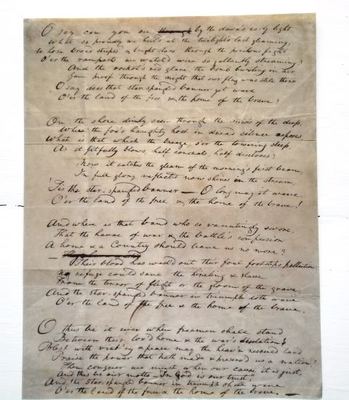 O say can you see by the dawn's early light
What so proudly we hail'd at the twilight's last gleaming,
Whose broad stripes & bright stars through the perilous fight
O'er the ramparts we watch'd were so gallantly streaming?
And the rocket's red glare, the bomb bursting in air,
Gave proof through the night that our flag was still there
O say does that star-spangled banner yet wave
O'er the land of the free & the home of the brave?
On the shore dimly seen through the mists of the deep,
Where the foe's haughty host in dread silence reposes,
What is that which the breeze, o'er the towering steep,
As it fitfully blows, half conceals, half discloses?
Now it catches the gleam of the morning's first beam,
In full glory reflected now shines in the stream,
'Tis the star-spangled banner — O long may it wave
O'er the land of the free & the home of the brave!
And where is that band who so vauntingly swore,
That the havoc of war & the battle's confusion
A home & a Country should leave us no more?
Their blood has wash'd out their foul footsteps pollution
No refuge could save the hireling & slave
From the terror of flight or the gloom of the grave,
And the star-spangled banner in triumph doth wave
O'er the land of the free & the home of the brave.
O thus be it ever when freemen shall stand
Between their lov'd home & the war's desolation!
Blest with vict'ry & peace may the heav'n rescued land
Praise the power that hath made & preserv'd us a nation!
Then conquer we must, when our cause it is just,
And this be our motto - In God is our trust,
And the star-spangled banner in triumph shall wave
O'er the land of the free & the home of the brave.